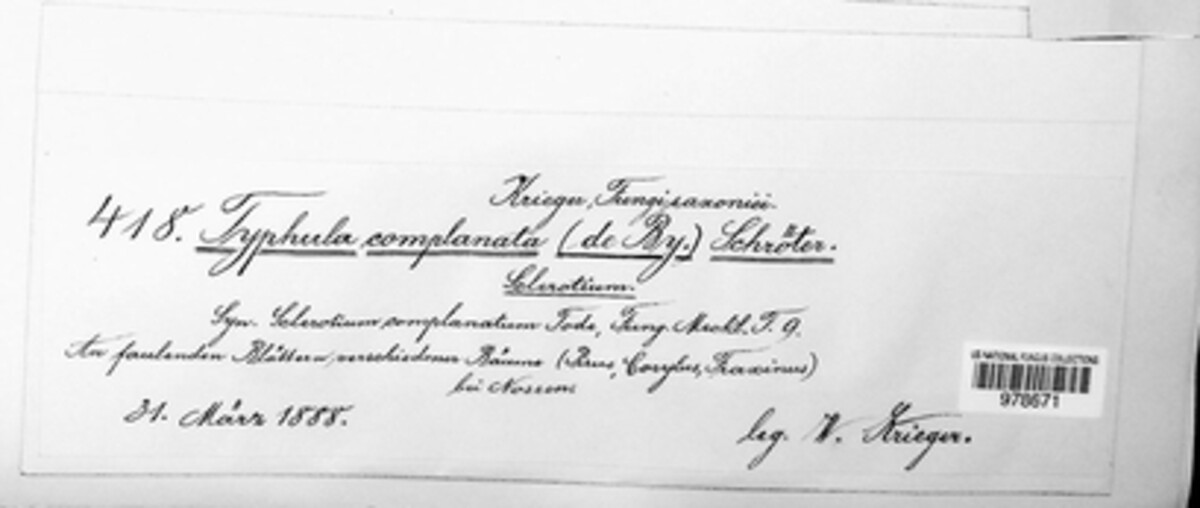 Krieger, Fungi saxonici.
418. Typhula complanata (de By.) Schröter.
Sclerotium.
Syn. Sclerotium complanatum Tode, Fung. Meckl. T. 9.
An faulenden Blättern verschiedener Bäume (Pirus, Corylus, Fraxinus)
bei Nossen.
31. März 1888.
leg. W. Krieger.
US NATIONAL FUNGUS COLLECTIONS
978671